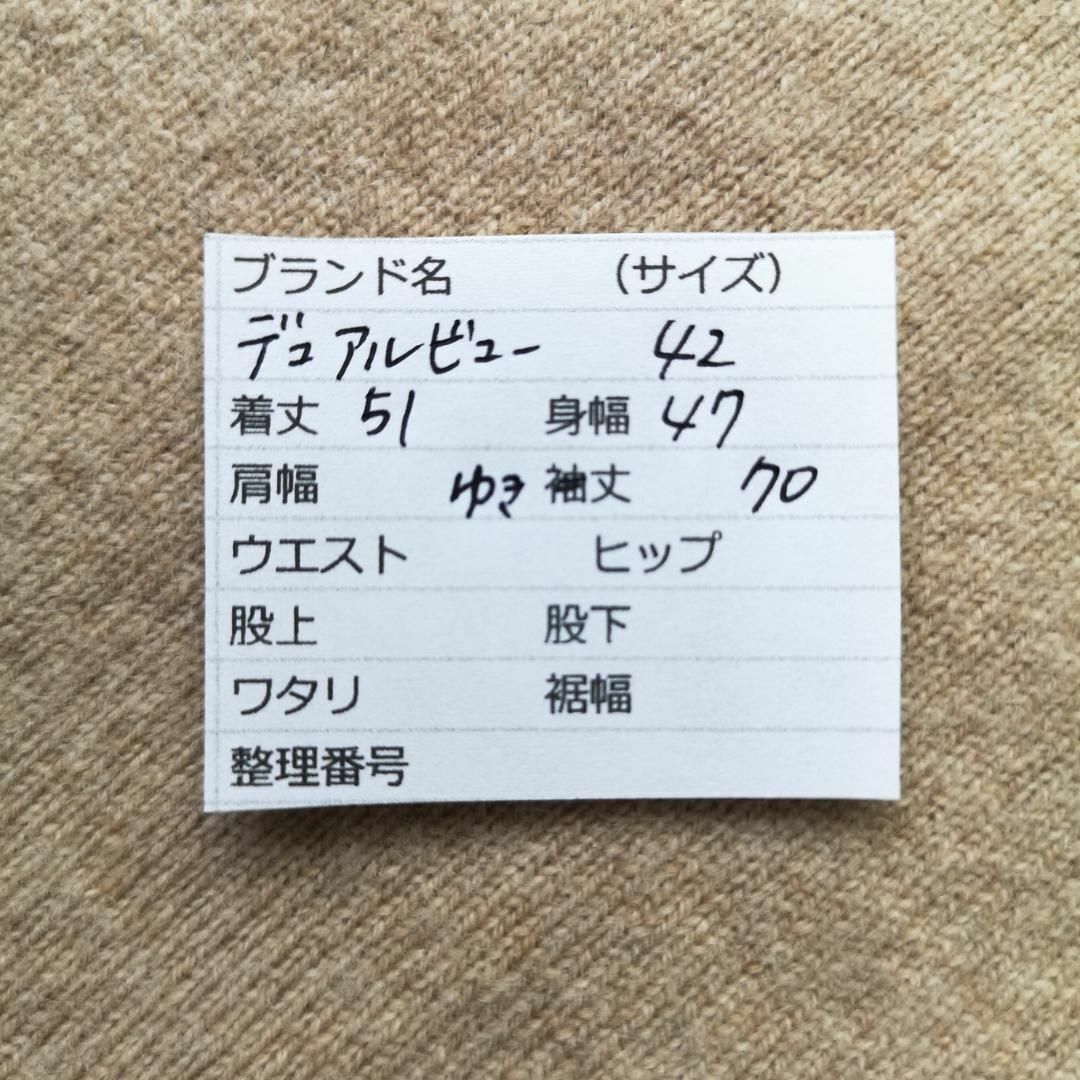 ブランド名 (サイズ)
デュアルビュー 42
着丈 51 身幅 47
肩幅 ゆき 袖丈 70
ウエスト ヒップ
股上 股下
ワタリ 裾幅
整理番号